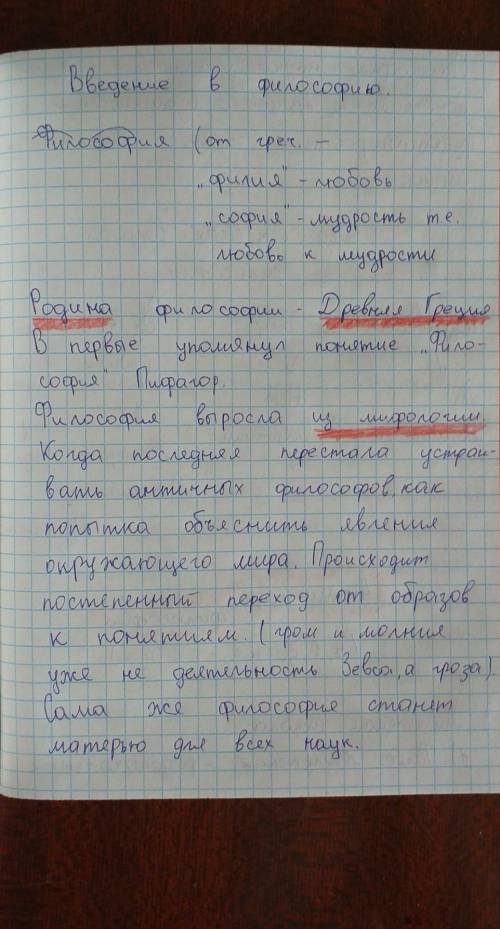 Введение в философию.
Философия (от греч. –
„филия" – любовь
„софия" – мудрость т.е.
любовь к мудрости
Родина философии – Древняя Греция
В первые упомянул понятие „Фило-
софия" Пифагор.
Философия выросла из мифологии.
Когда последняя перестала устраи-
вать античных философов, как
попытка объяснить явления
окружающего мира. Происходит
постепенный переход от образов
к понятиям. (гром и молния
уже не деятельность Зевса, а гроза).
Сама же философия станет
матерью для всех наук.